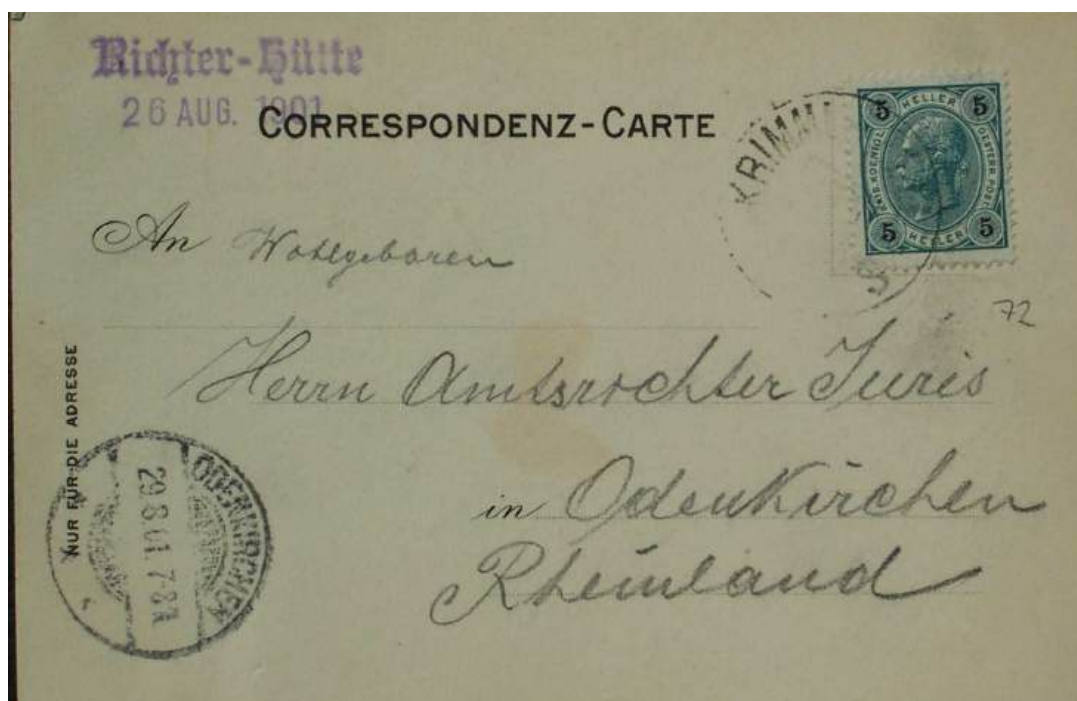 Richter-Hütte
26 AUG. 1901
CORRESPONDENZ-CARTE
KRIMML
5 HELLER 5
KAIS. KOENIGL. OESTERR. POST.
5 HELLER 5
An Wohlgeboren
72
Herrn Amtsrichter Juris
in Odenkirchen
Rheinland
NUR FÜR DIE ADRESSE
ODENKIRCHEN
29.8.01. 7-8N